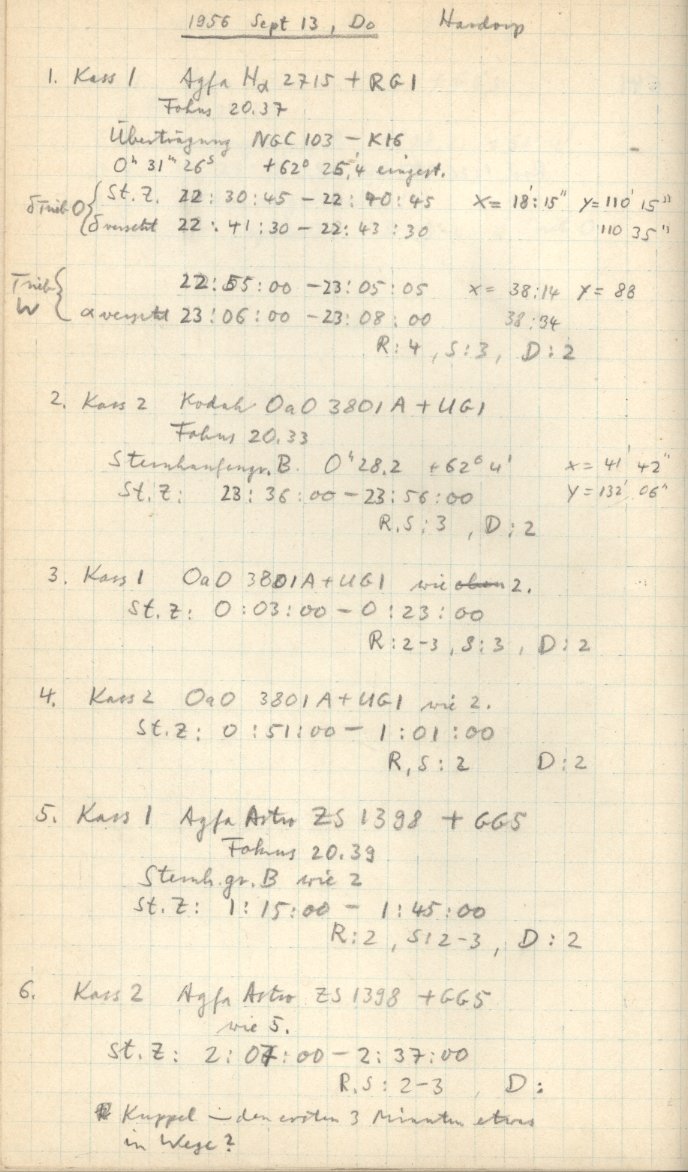 1956 Sept 13, Do Hardorp
1. Kass 1 Agfa Hα 2715 + RG1
Fokus 20.37
Übertragung NGC 103 – K16
0ʰ 31ᵐ 26ˢ +62° 25,′4 eingest.
δ Trieb O { St. Z. 22:30:45 – 22:40:45 X = 18′:15″ Y = 110′ 15″
δ versetzt 22:41:30 – 22:43:30 110 35″
Trieb W { 22:55:00 – 23:05:05 X = 38:14 Y = 88
α versetzt 23:06:00 – 23:08:00 38:34
R:4, S:3, D:2
2. Kass 2 Kodak OaO 3801A + UG1
Fokus 20.33
Sternhaufengr. B. 0ʰ28.2 +62° 4′ X = 41′ 42″
St. Z: 23:36:00 – 23:56:00 Y = 132′ 06″
R,S:3, D:2
3. Kass 1 OaO 3801A + UG1 wie oben 2.
St. Z: 0:03:00 – 0:23:00
R:2-3, S:3, D:2
4. Kass 2 OaO 3801A + UG1 wie 2.
St. Z: 0:51:00 – 1:01:00
R,S:2 D:2
5. Kass 1 Agfa Astro ZS 1398 + GG5
Fokus 20.39
Sternh.gr. B wie 2
St. Z: 1:15:00 – 1:45:00
R:2, S:2-3, D:2
6. Kass 2 Agfa Astro ZS 1398 + GG5
wie 5.
St. Z: 2:07:00 – 2:37:00
R,S:2-3 D:
Kuppel in den ersten 3 Minuten etwas
im Wege?